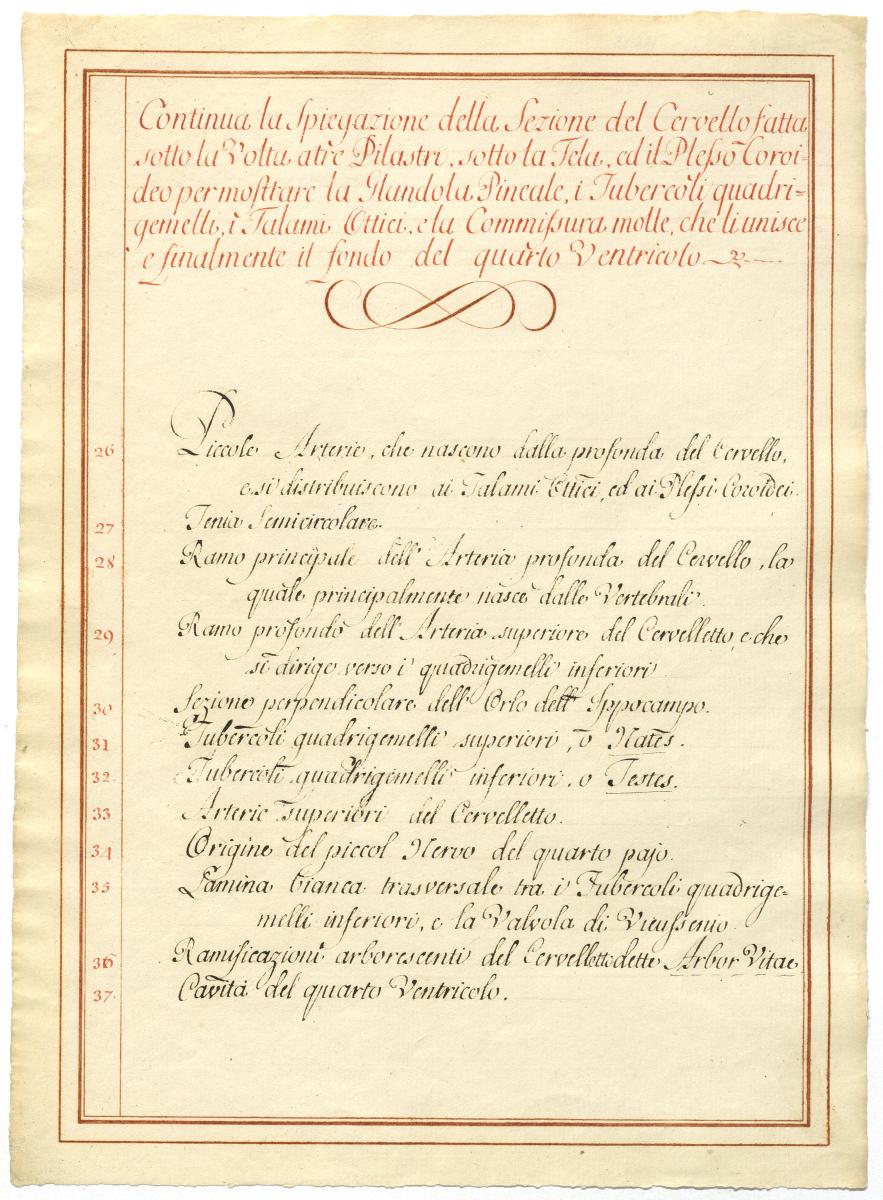 Continua la Spiegazione della Sezione del Cervello fatta
sotto la Volta a trè Pilastri, sotto la Tela, ed il Plesso Coroi=
deo per mostrare la Glandola Pineale, i Tubercoli quadri=
gemelli, i Talami Ottici, e la Commissura molle, che li unisce
e finalmente il fondo del quarto Ventricolo
26 Piccole Arterie, che nascono dalla profonda del Cervello,
e si distribuiscono ai Talami Ottici, ed ai Plessi Coroidei.
27 Tenia Semicircolare.
28 Ramo principale dell' Arteria profonda del Cervello, la
quale principalmente nasce dalle Vertebrali.
29 Ramo profondo dell' Arteria superiore del Cervelletto, e che
si dirige verso i quadrigemelli inferiori
30 Sezione perpendicolare dell' Orlo dell' Ippocampo.
31 Tubercoli quadrigemelli superiori, o Nates.
32. Tubercoli quadrigemelli inferiori, o Testes.
33 Arterie superiori del Cervelletto.
34 Origine del piccol Nervo del quarto pajo.
35 Lamina bianca trasversale tra i Tubercoli quadrige=
melli inferiori, e la Valvola di Vieussenio.
36 Ramificazioni arborescenti del Cervelletto dette Arbor Vitae
37. Cavità del quarto Ventricolo.